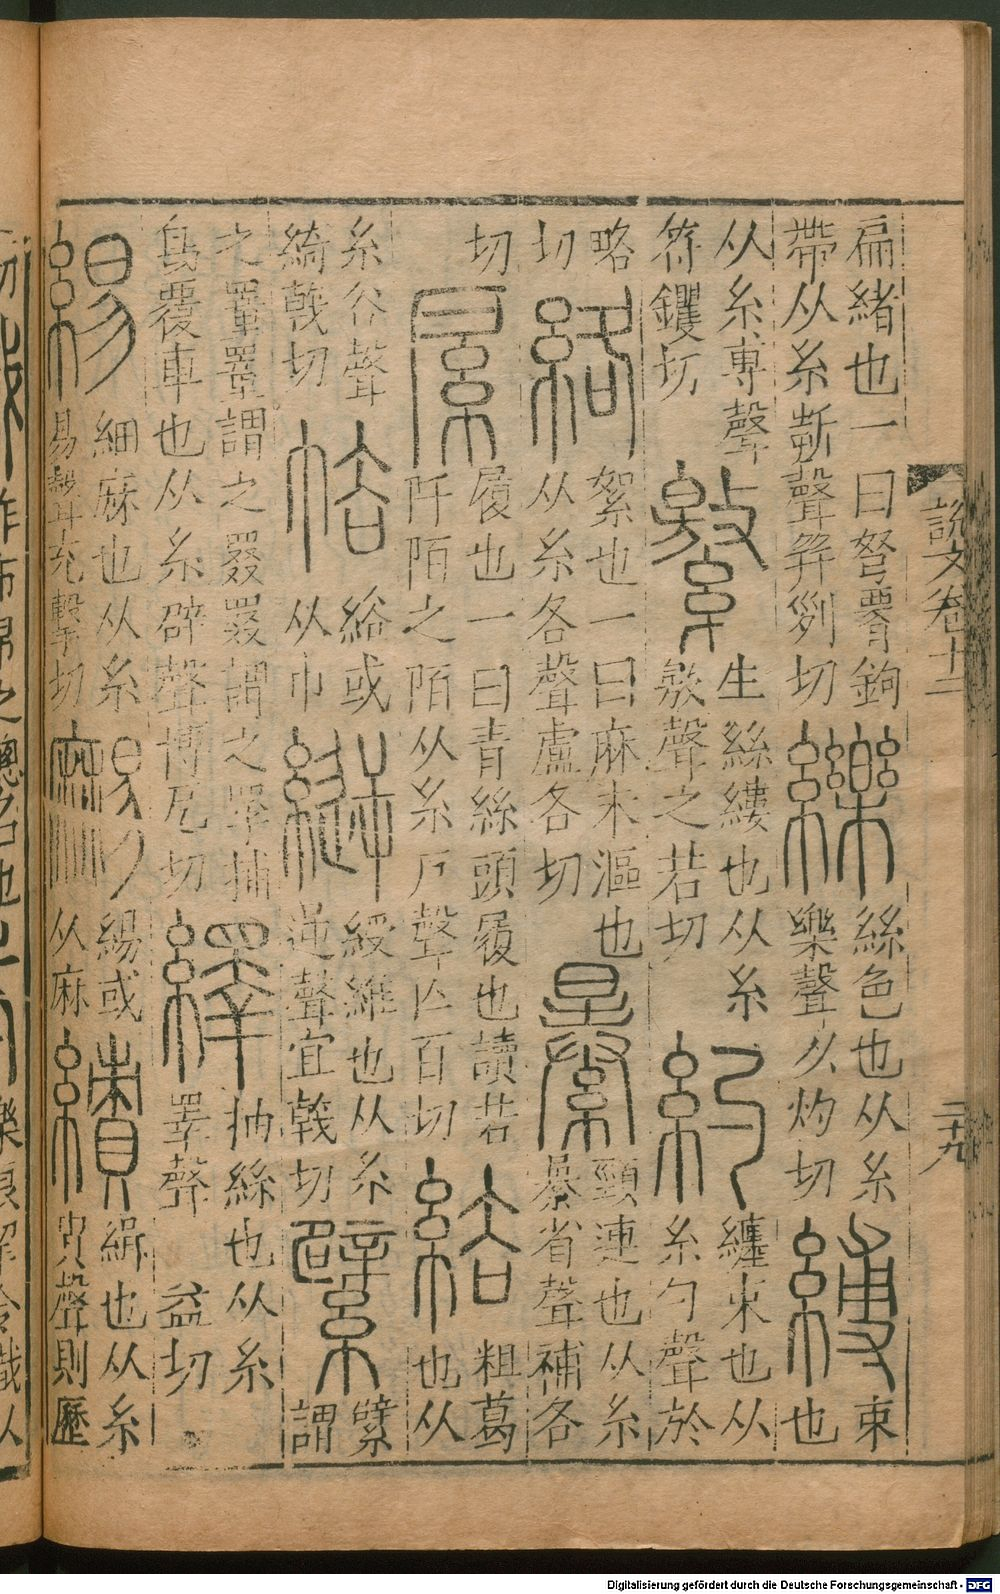 扁緒也一曰弩䚢鉤帶从糸折聲并列切纅絲色也从糸樂聲以灼切縛束也
从糸尃聲符钁切繳生絲縷也从糸敫聲之若切約纏束也从糸勺聲於
略切絡絮也一曰麻未漚也从糸各聲盧各切頸連也从糸暴省聲補各
切履也一曰青絲頭履也讀若阡陌之陌从糸戶聲亡百切綌粗葛也从
糸谷聲綺戟切㡈綌或从巾縌綬維也从糸逆聲宜戟切繴繴謂
之罿罿謂之罬罬謂之罦捕鳥覆車也从糸辟聲博戹切繹抽絲也从糸睪聲益切
緆細麻也从糸易聲先擊切緆或从麻績緝也从糸責聲則歷
說文卷十三
二十九
Digitalisierung gefördert durch die Deutsche Forschungsgemeinschaft - DFG